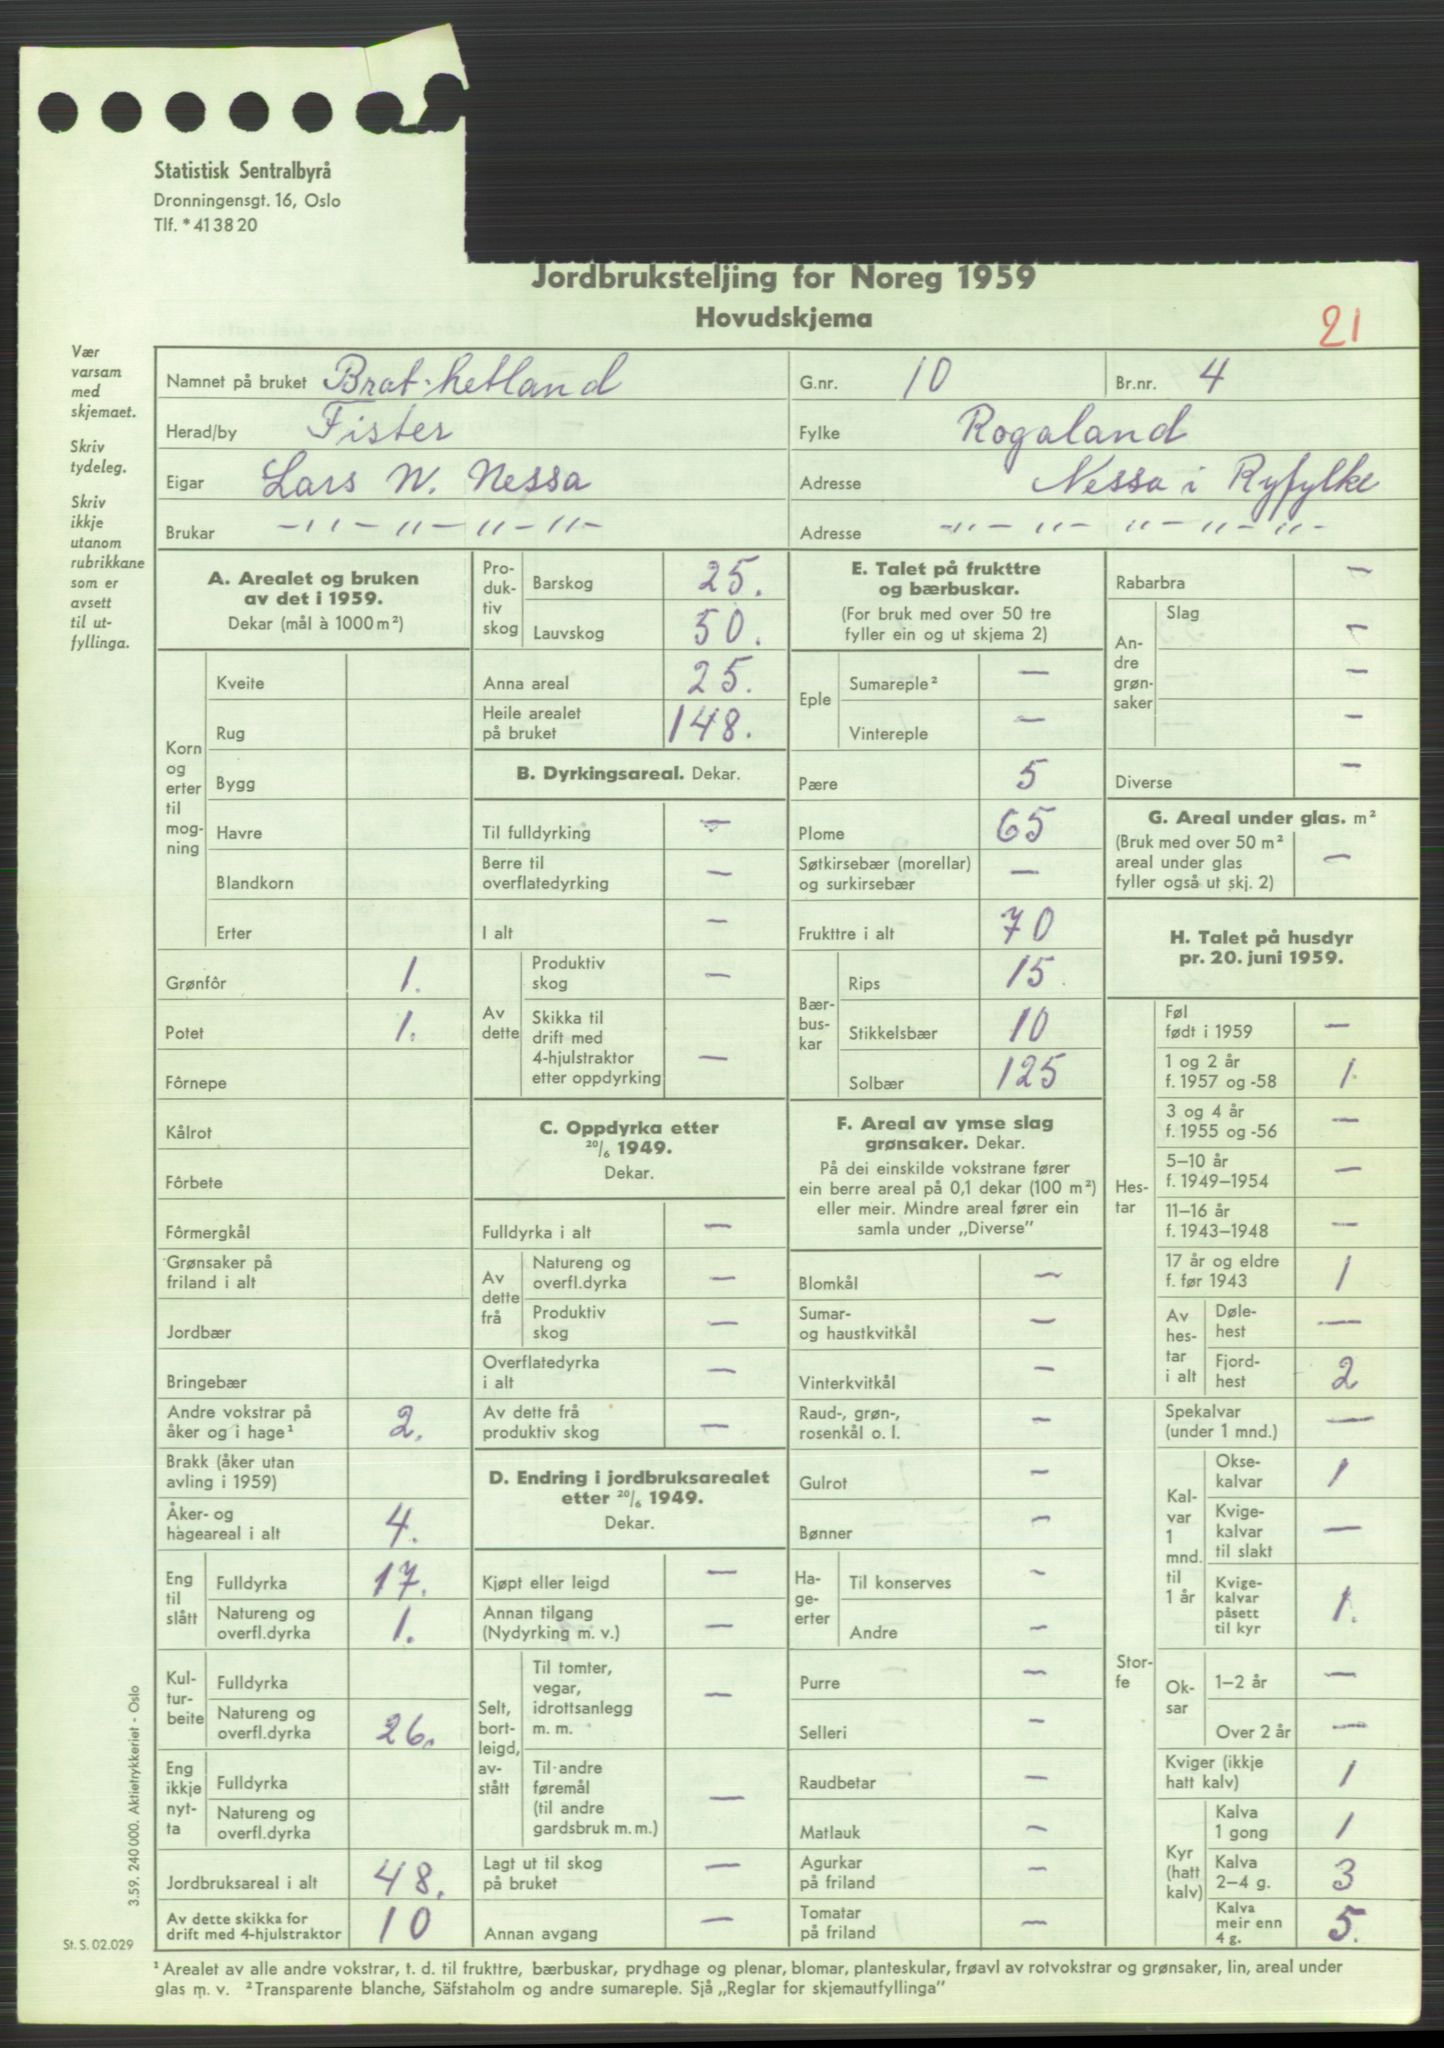 Statistisk Sentralbyrå
Dronningensgt. 16, Oslo
Tlf. * 41 38 20
Jordbruksteljing for Noreg 1959
Hovudskjema
21
Vær
varsam
med
skjemaet.
Skriv
tydeleg.
Skriv
ikkje
utanom
rubrikkane
som er
avsett
til ut-
fyllinga.
Namnet på bruket Brat-hetland G.nr. 10 Br.nr. 4
Herad/by Fister Fylke Rogaland
Eigar Lars W. Nessa Adresse Nessa i Ryfylke
Brukar -"-"-"-"- Adresse -"-"-"-"-"-
A. Arealet og bruken
av det i 1959.
Dekar (mål à 1000 m²)
Korn
og
erter
til
mog-
ning
Kveite
Rug
Bygg
Havre
Blandkorn
Erter
Grønfôr 1.
Potet 1.
Fôrnepe
Kålrot
Fôrbete
Fôrmergkål
Grønsaker på
friland i alt
Jordbær
Bringebær
Andre vokstrar på
åker og i hage¹ 2.
Brakk (åker utan
avling i 1959)
Åker- og
hageareal i alt 4.
Eng
til
slått
Fulldyrka 17.
Natureng og
overfl.dyrka 1.
Kul-
tur-
beite
Fulldyrka
Natureng og
overfl.dyrka 26.
Eng
ikkje
nyt-
ta
Fulldyrka
Natureng og
overfl.dyrka
Jordbruksareal i alt 48.
Av dette skikka for
drift med 4-hjulstraktor 10
Pro-
duk-
tiv
skog
Barskog 25.
Lauvskog 50.
Anna areal 25.
Heile arealet
på bruket 148.
B. Dyrkingsareal. Dekar.
Til fulldyrking —
Berre til
overflatedyrking —
I alt —
Av
dette
Produktiv
skog —
Skikka til
drift med
4-hjulstraktor
etter oppdyrking —
C. Oppdyrka etter
20/6 1949.
Dekar.
Fulldyrka i alt —
Av
dette
frå
Natureng og
overfl.dyrka —
Produktiv
skog —
Overflatedyrka
i alt —
Av dette frå
produktiv skog —
D. Endring i jordbruksarealet
etter 20/6 1949.
Dekar.
Kjøpt eller leigd —
Annan tilgang
(Nydyrking m. v.) —
Selt,
bort-
leigd,
av-
stått
Til tomter,
vegar,
idrottsanlegg
m. m. —
Til andre
føremål
(til andre
gardsbruk m. m.) —
Lagt ut til skog
på bruket —
Annan avgang —
E. Talet på frukttre
og bærbuskar.
(For bruk med over 50 tre
fyller ein og ut skjema 2)
Eple
Sumareple² —
Vintereple —
Pære 5
Plome 65
Søtkirsebær (morellar)
og surkirsebær —
Frukttre i alt 70
Bær-
bus-
kar
Rips 15
Stikkelsbær 10
Solbær 125
F. Areal av ymse slag
grønsaker. Dekar.
På dei einskilde vokstrane fører
ein berre areal på 0,1 dekar (100 m²)
eller meir. Mindre areal fører ein
samla under „Diverse”
Blomkål —
Sumar-
og haustkvitkål —
Vinterkvitkål —
Raud-, grøn-,
rosenkål o. l. —
Gulrot —
Bønner —
Ha-
ge-
erter
Til konserves —
Andre —
Purre —
Selleri —
Raudbetar —
Matlauk —
Agurkar
på friland —
Tomatar
på friland —
Rabarbra —
An-
dre
grøn-
saker
Slag —
—
—
Diverse —
G. Areal under glas. m²
(Bruk med over 50 m²
areal under glas
fyller også ut skj. 2) —
H. Talet på husdyr
pr. 20. juni 1959.
Hes-
tar
Føl
født i 1959 —
1 og 2 år
f. 1957 og -58 1
3 og 4 år
f. 1955 og -56 —
5–10 år
f. 1949–1954 —
11–16 år
f. 1943–1948 —
17 år og eldre
f. før 1943 1
Av
hes-
tar
i alt
Døle-
hest —
Fjord-
hest 2
Stor-
fe
Spekalvar
(under 1 mnd.) —
Kal-
var
1
mnd.
til
1 år
Okse-
kalvar 1
Kvige-
kalvar
til slakt —
Kvige-
kalvar
påsett
til kyr 1.
Ok-
sar
1–2 år —
Over 2 år —
Kviger (ikkje
hatt kalv) 1
Kyr
(hatt
kalv)
Kalva
1 gong 1
Kalva
2–4 g. 3
Kalva
meir enn
4 g. 5.
3.59. 240 000. Aktietrykkeriet - Oslo
St. S. 02.029
¹ Arealet av alle andre vokstrar, t. d. til frukttre, bærbuskar, prydhage og plenar, blomar, planteskular, frøavl av rotvokstrar og grønsaker, lin, areal under
glas m. v. ² Transparente blanche, Säfstaholm og andre sumareple. Sjå „Reglar for skjemautfyllinga”